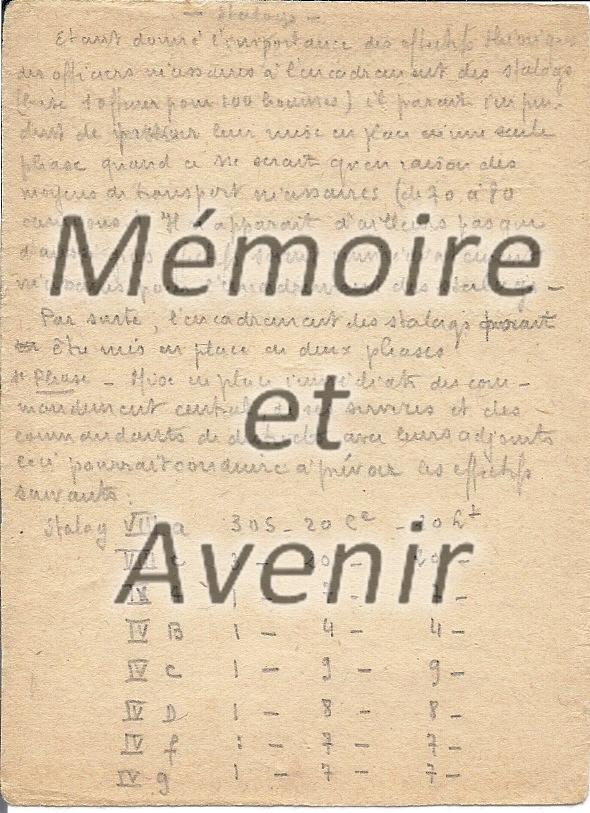 — Stalags —
Etant donné l'importance des effectifs théoriques
des officiers nécessaires à l'encadrement des stalags
(base 1 officier pour 100 hommes) il parait impru-
dent de leur mise en place en une seule
phase quand ce ne serait qu'en raison des
moyens de transport nécessaires (de 70 à 80
camions). Il n'apparait d'ailleurs pas que
Mémoire
nécessaires pour l'encadrement des stalags —
Par suite, l'encadrement des stalags pourrait
être mis en place en deux phases
1e Phase — Mise en place immédiate du com-
et
mandement central de ses services et des
commandants de districts avec leurs adjoints
ceci pourrait conduire à prévoir les effectifs
suivants :
Stalag VIII a 3 OS — 20 Ce — 20 Lt
Avenir
VIII C 3 — 20 — 20 —
IV B 1 — 4 — 4 —
IV C 1 — 9 — 9 —
IV D 1 — 8 — 8 —
IV f 1 — 7 — 7 —
IV g 1 — 7 — 7 —